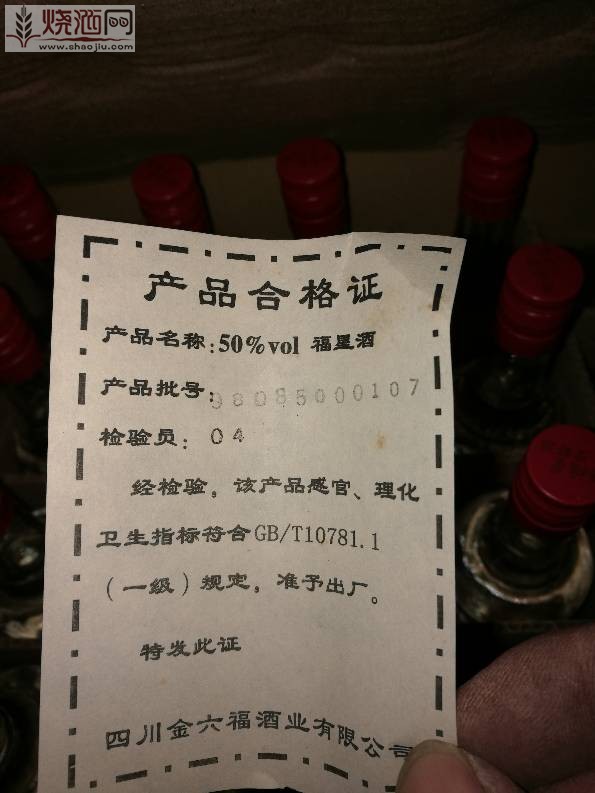 烧酒网
www.shaojiu.com
产品合格证
产品名称:50%vol 福星酒
产品批号:98085000107
检验员: 04
经检验，该产品感官、理化
卫生指标符合GB/T10781.1
（一级）规定，准予出厂。
特发此证
四川金六福酒业有限公司